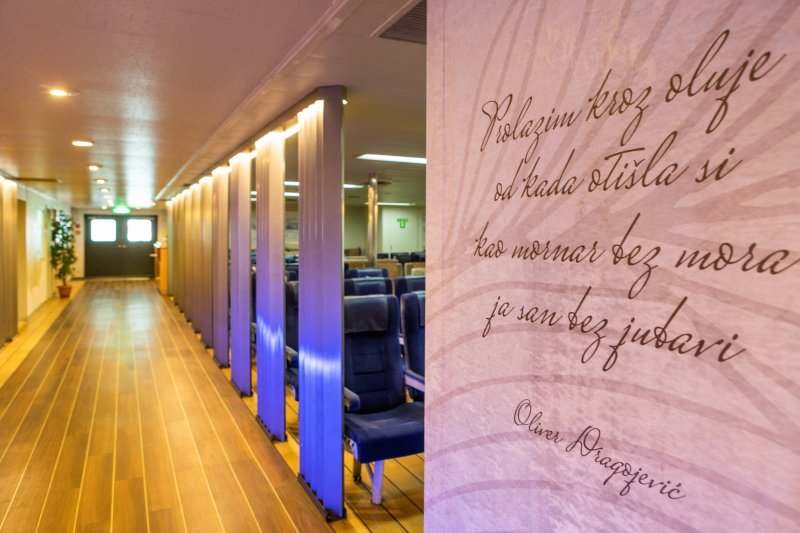 Prolazim kroz oluje
od kada otišla si
kao mornar bez mora
ja san bez jubavi
Oliver Dragojević